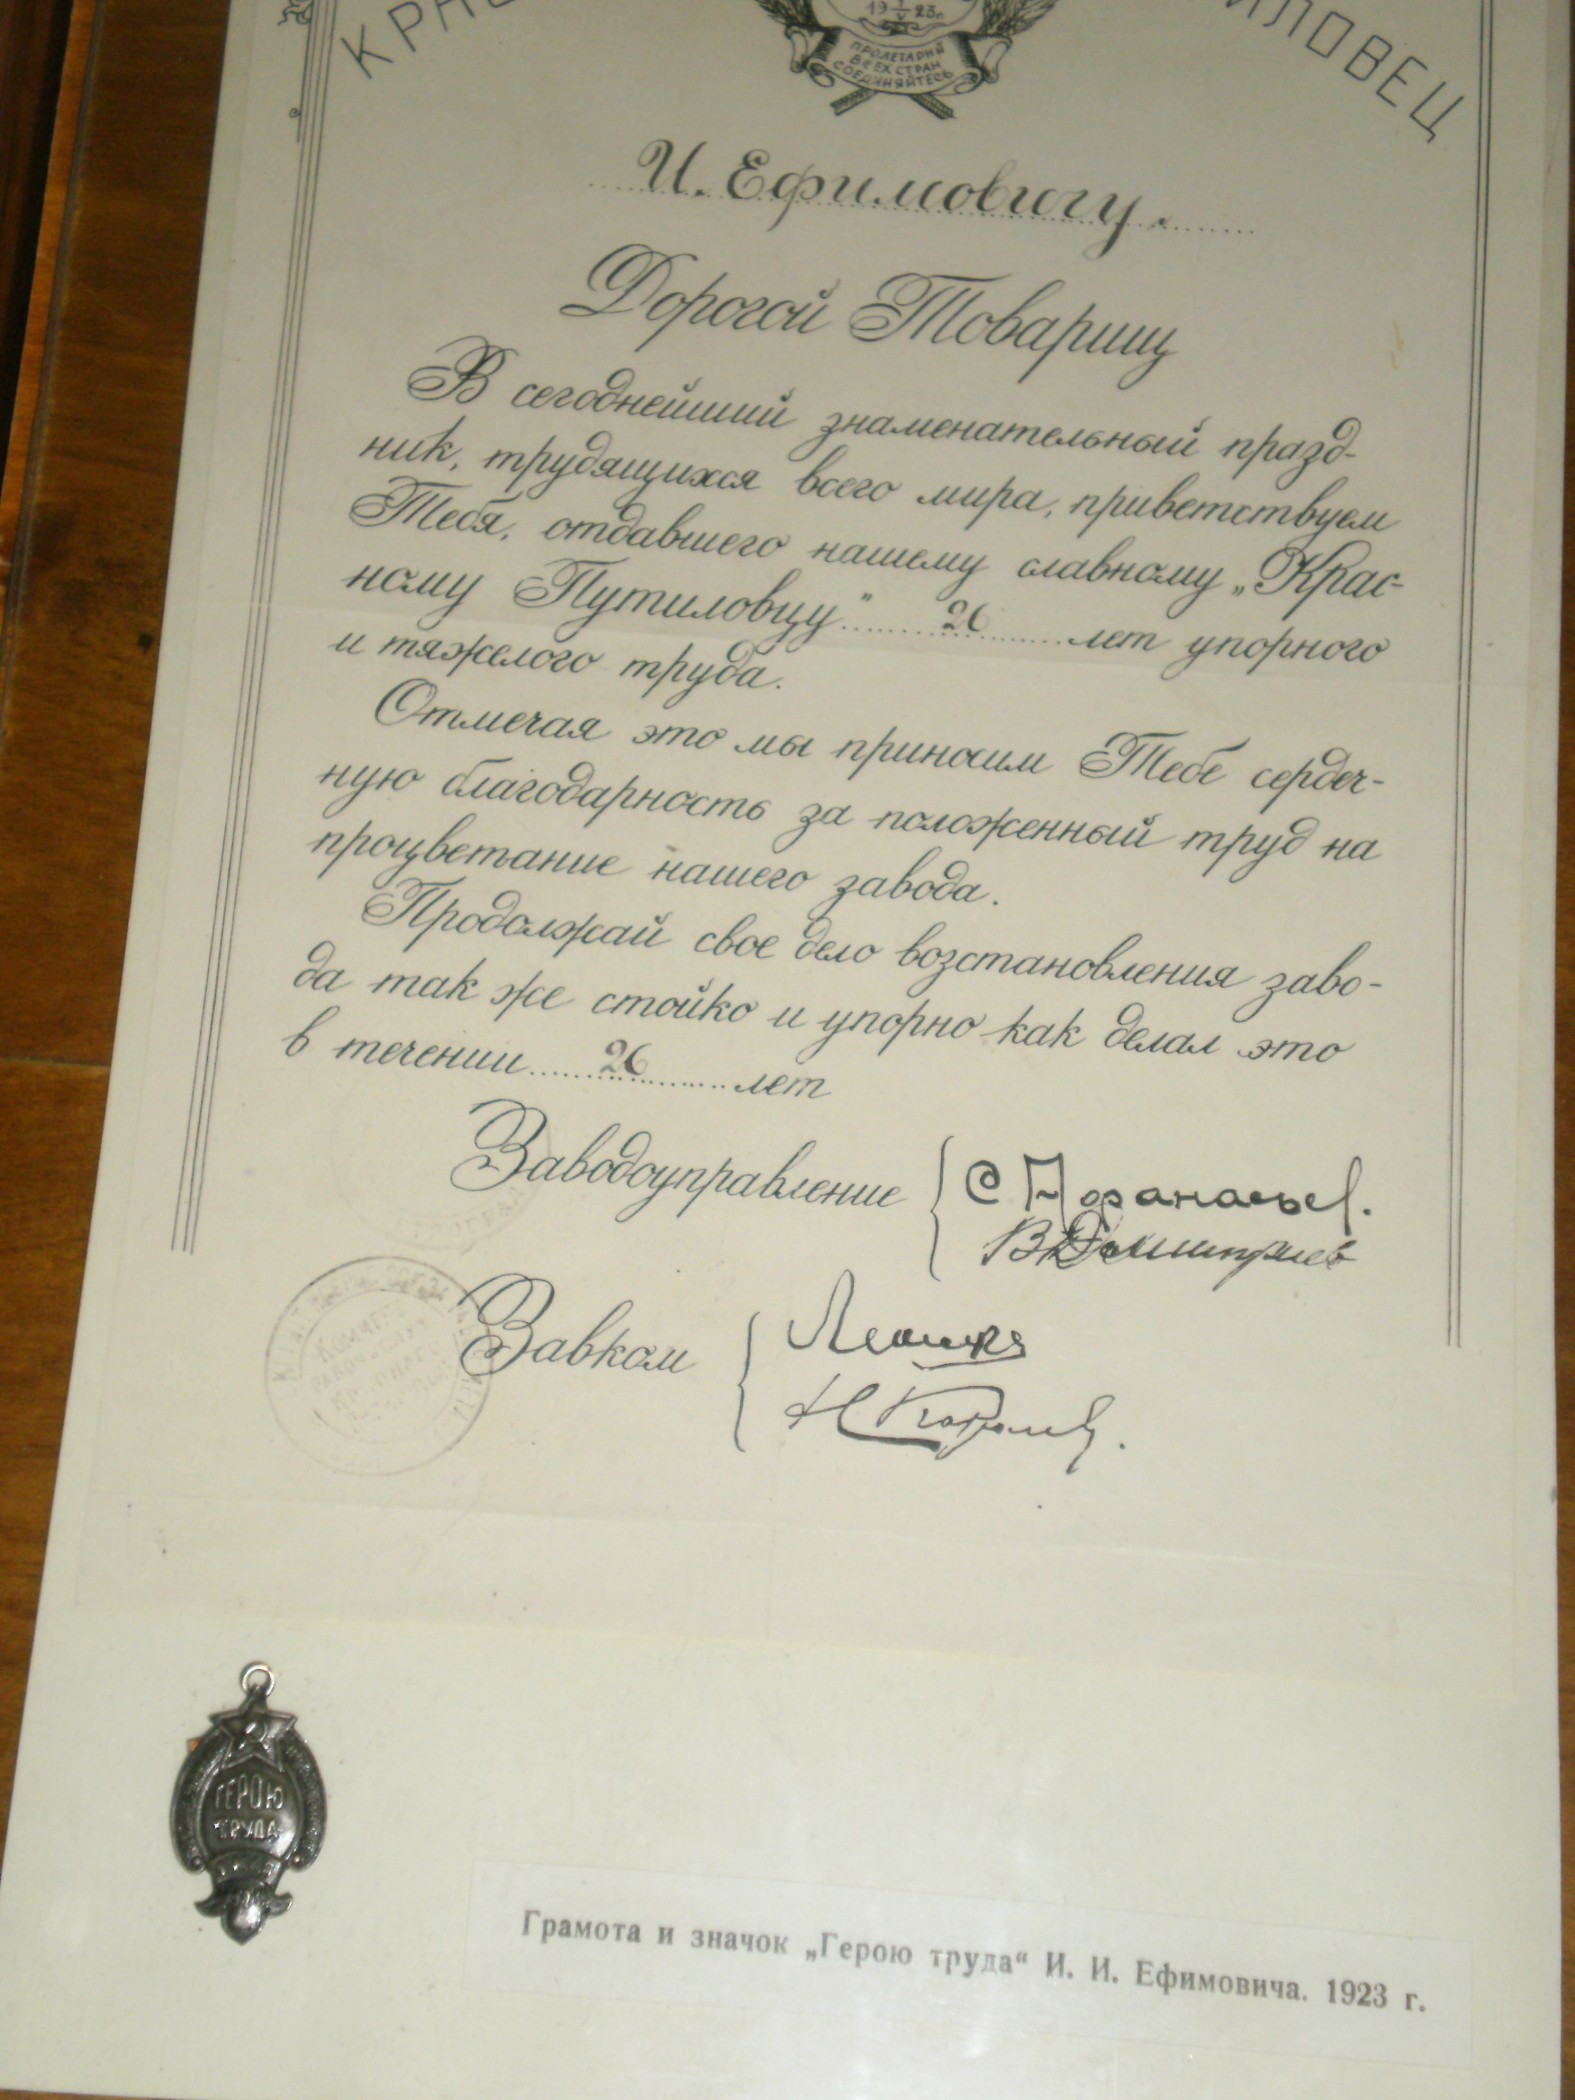 19 I/V 23 г.
ПРОЛЕТАРИИ
ВСЕХ СТРАН
СОЕДИНЯЙТЕСЬ
И. Ефимовичу.
Дорогой Товарищ
В сегоднейший знаменательный празд-
ник, трудящихся всего мира, приветствуем
Тебя, отдавшего нашему славному „Крас-
ному Путиловцу" 26 лет упорного
и тяжелого труда.
Отмечая это мы приносим Тебе сердеч-
ную благодарность за положенный труд на
процветание нашего завода.
Продолжай свое дело возстановления заво-
да так же стойко и упорно как делал это
в течении 26 лет
Заводоуправление
В Дмитриев
Завком
ГЕРОЮ
ТРУДА
Грамота и значок „Герою труда“ И. И. Ефимовича. 1923 г.